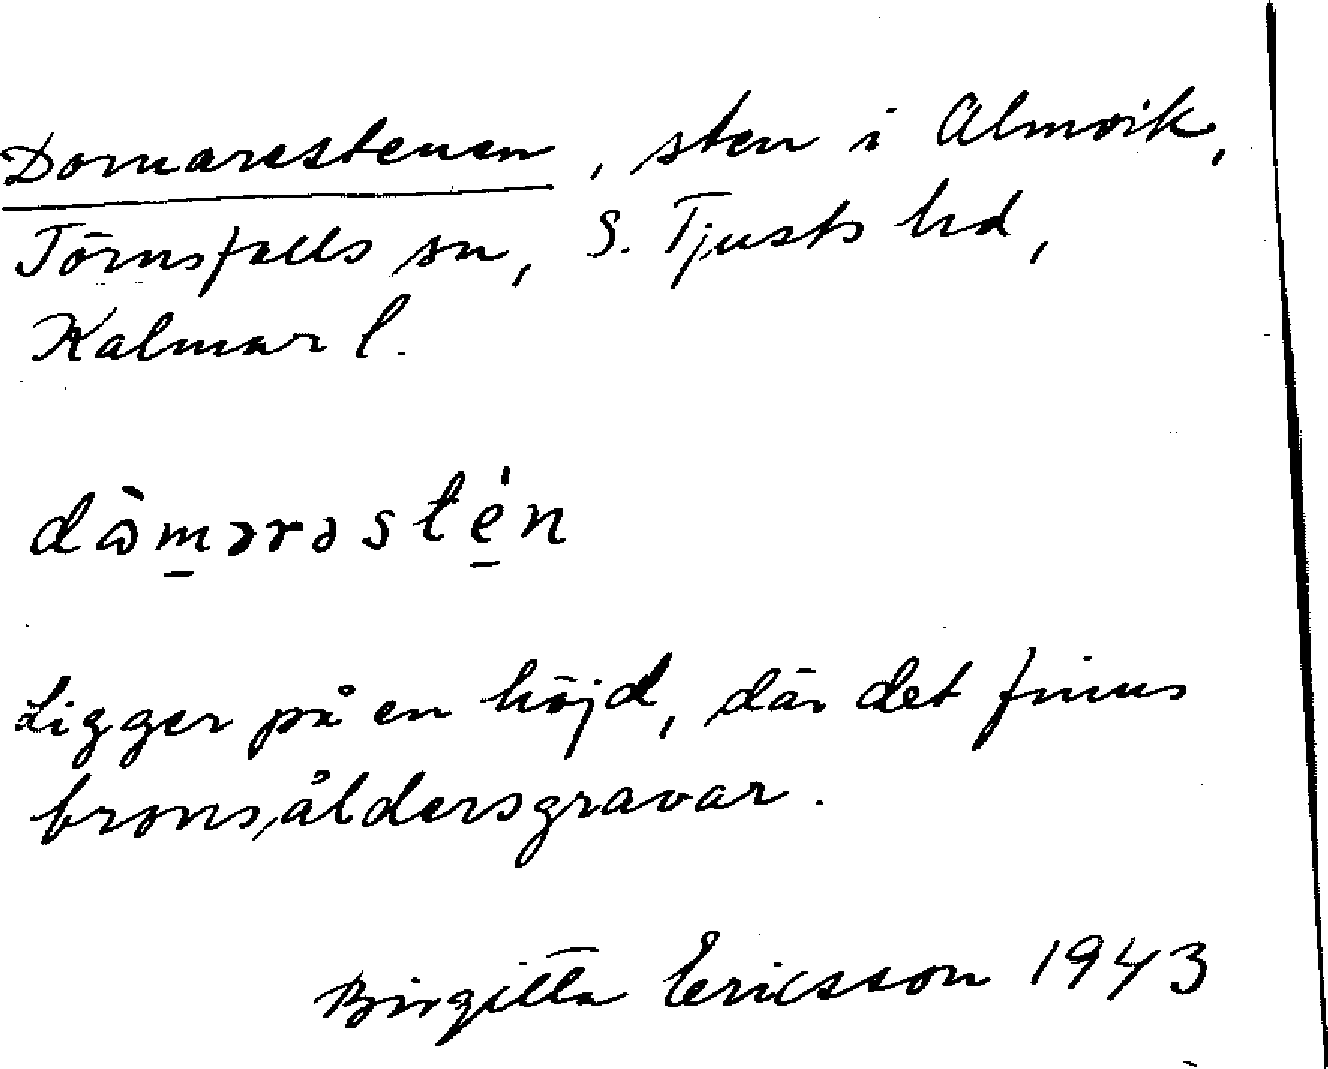 Domarestenen, sten i Almvik,
Törnsfalls sn, S. Tjusts hd,
Kalmar l.
dò̀mərəstén
Ligger på en höjd, där det finns
bronsåldersgravar.
Birgitta Ericsson 1943